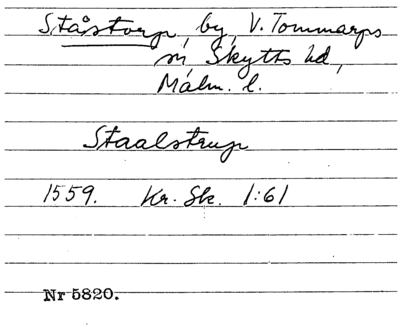 Ståstorp, by, V. Tommarps
sn Skytts hd,
Malm. l.
Staalstrup
1559. Kr. Sk. 1:61
Nr 5820.